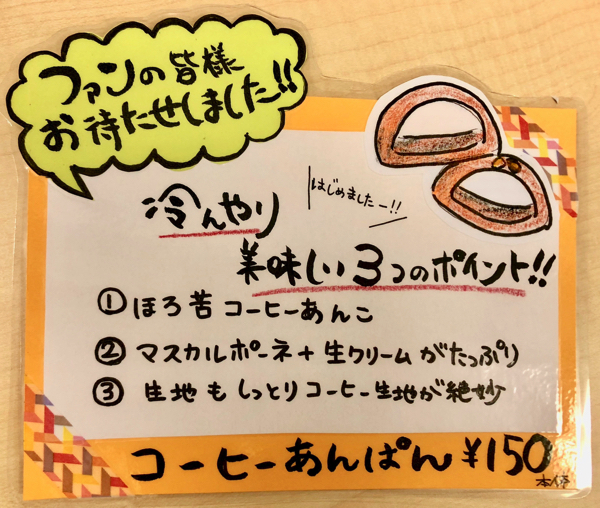 ファンの皆様
お待たせしました!!
はじめましたー!!
冷んやり
美味しい3つのポイント!!
① ほろ苦コーヒーあんこ
② マスカルポーネ+生クリームがたっぷり
③ 生地もしっとりコーヒー生地が絶妙
コーヒーあんぱん ¥150